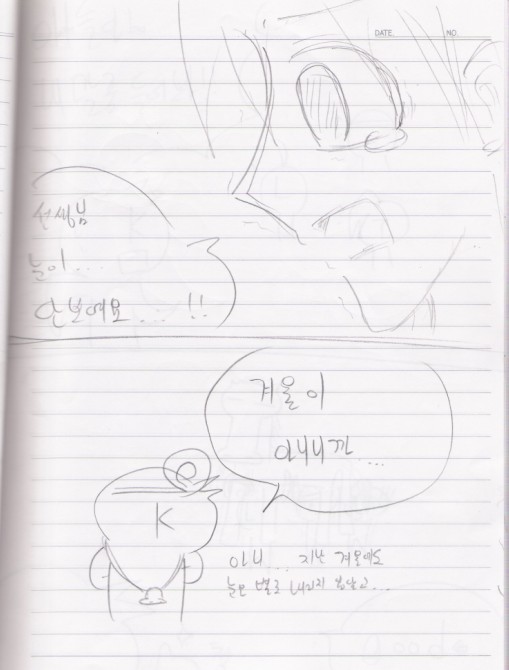 DATE. NO.
선생님
눈이....
안보여요....!!
겨울이
아니니까....
K
아니...지난 겨울에도
별로 내리지